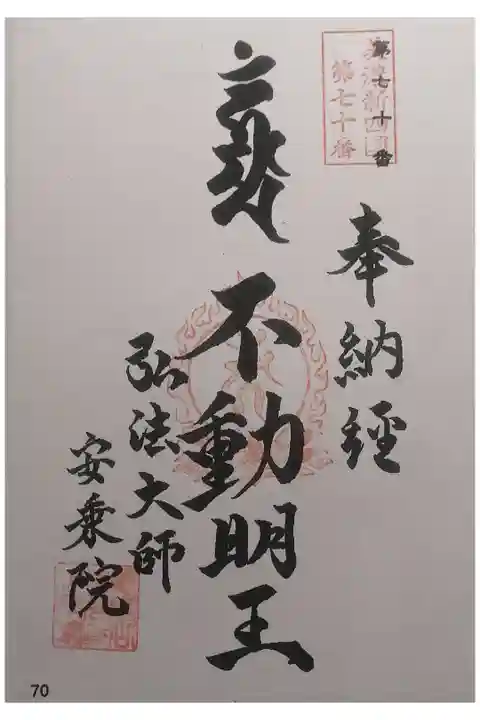 新四國
第七十番
第七十番
奉納経
不動明王
弘法大師
安乗院
70